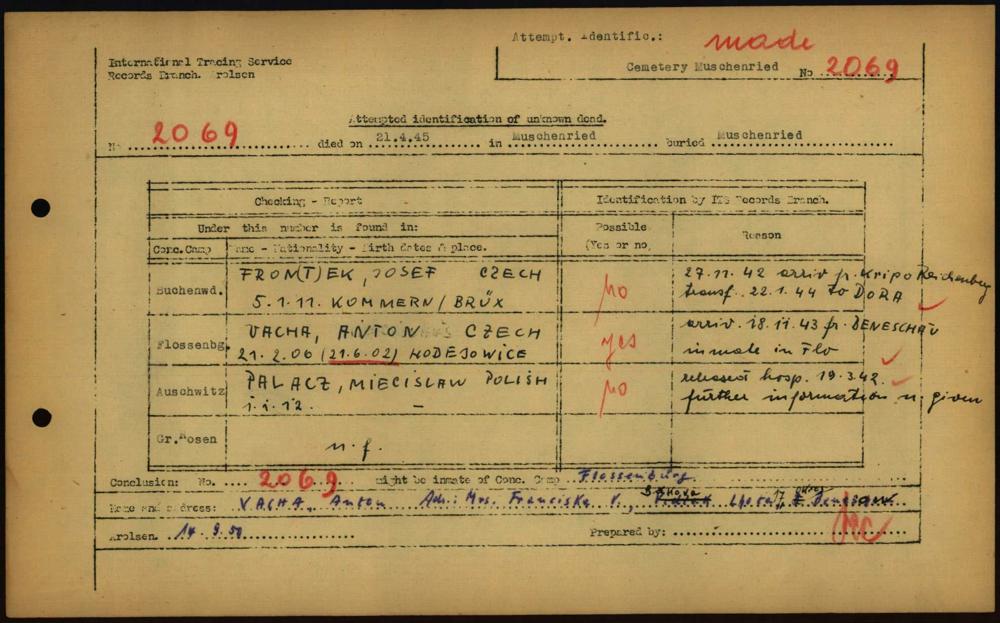 Attempt. Identific.: made
International Tracing Service
Records Branch. Arolsen
Cemetery Muschenried No 2069
Attempted identification of unknown dead.
No 2069 died on 21.4.45 in Muschenried buried Muschenried
Checking - Report
Identification by ITS Records Branch.
Under this number is found in:
Possible
(Yes or no)
Reason
Conc.Camp Name - Nationality - Birth dates & place.
Buchenwd.
FRON(T)EK, JOSEF CZECH
5.1.11. KOMMERN/BRÜX
no
27.11.42 arriv fr. Kripo Reichenberg
transf. 22.1.44 to DORA
Flossenbg.
VACHA, ANTON CZECH
21.2.06 (21.6.02) HODEJOWICE
yes
arriv. 18.11.43 fr. BENESCHAU
inmate in Flo
Auschwitz
PALACZ, MIECISLAW POLISH
1.1.12. -
no
released hosp. 19.3.42.
further information n. given
Gr.Rosen
n.f.
Conclusion: No. 2069 might be inmate of Conc. Camp Flossenbürg
Name and address: VACHA, Anton Adr.: Mrs. Franciska V., Lhota 17
Arolsen. 14.9.50
Prepared by: